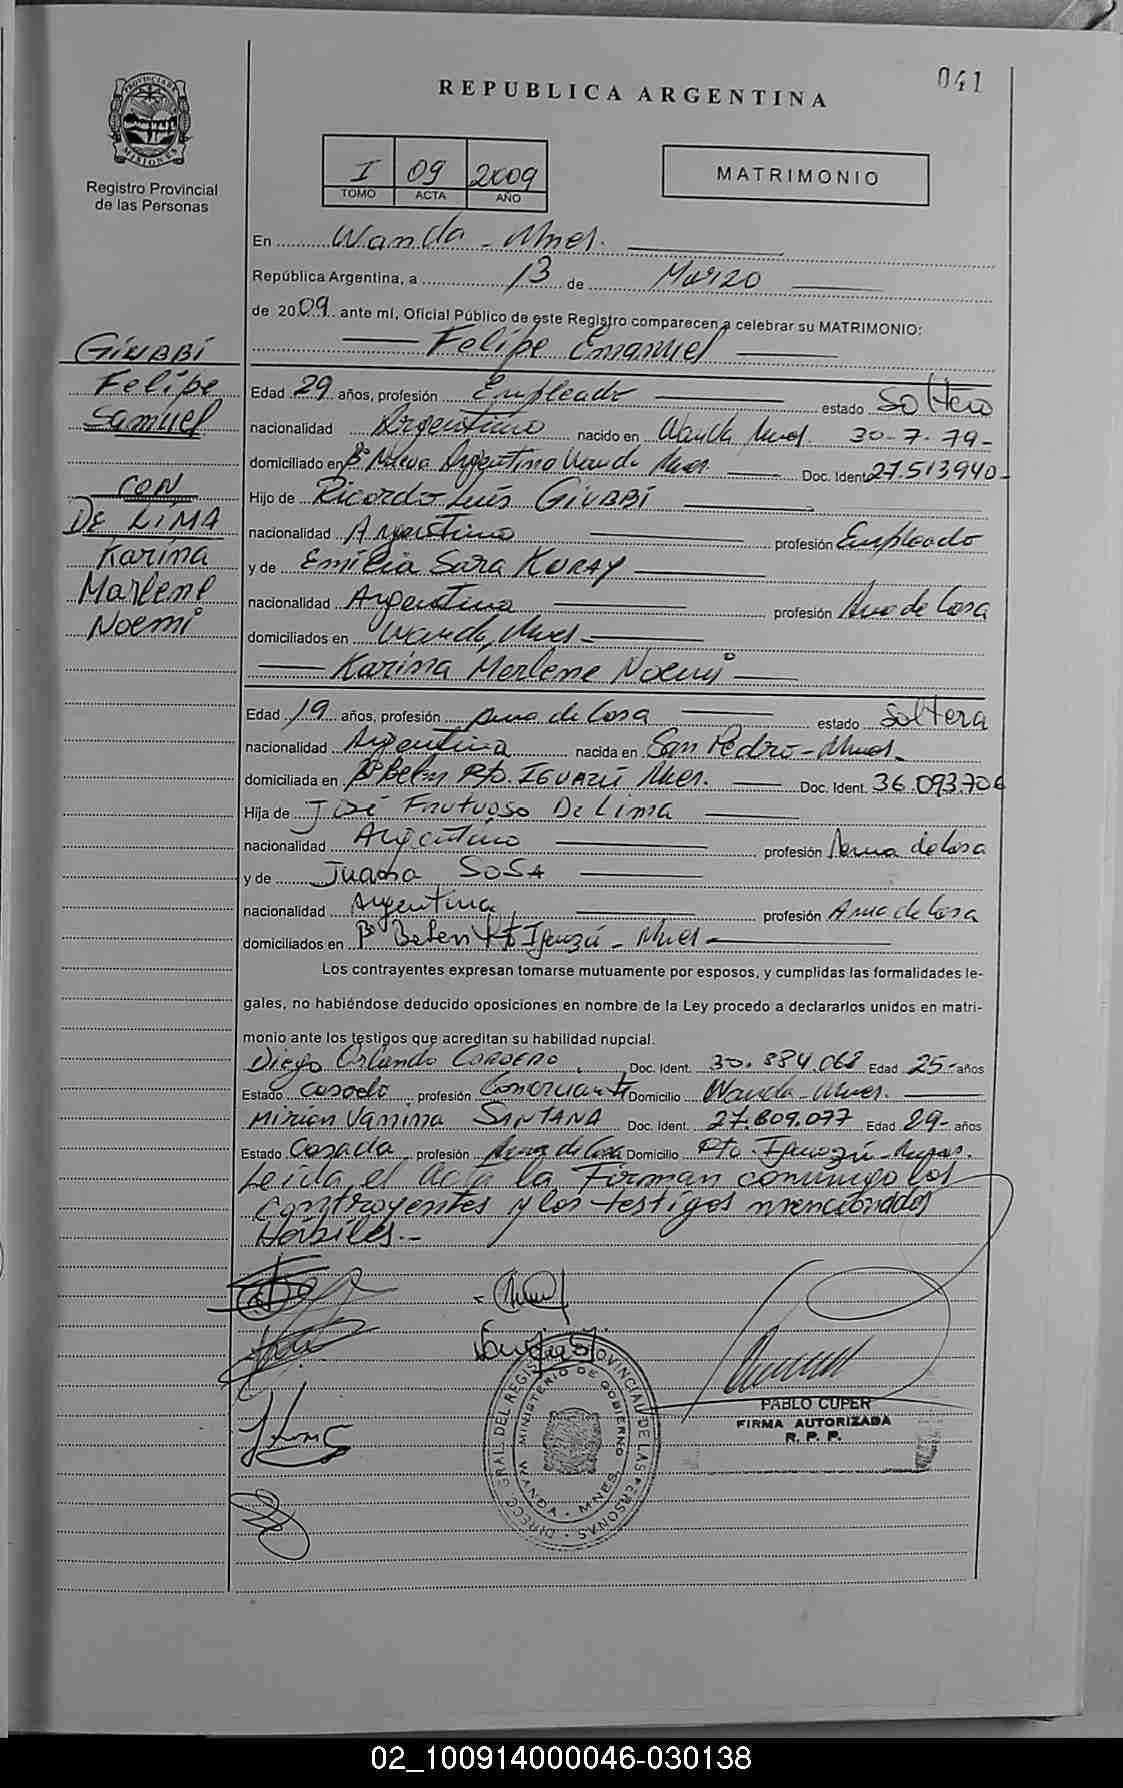 041
REPUBLICA ARGENTINA
PROVINCIA DE MISIONES
Registro Provincial
de las Personas
I 09 2009
TOMO ACTA AÑO
MATRIMONIO
En Wanda - Mnes.
República Argentina, a 13 de Marzo
de 2009 ante mí, Oficial Público de este Registro comparecen a celebrar su MATRIMONIO:
Felipe Emanuel
GIRABI
Felipe
Samuel
CON
DE LIMA
Karina
Marlene
Noemi
Edad 29 años, profesión Empleado estado Soltero
nacionalidad Argentino nacido en Wanda Mnes. 30-7-79-
domiciliado en Bº Nueva Argentina Wanda Mnes. Doc. Ident. 27.513.940-
Hijo de Ricardo Luis GIRABI
nacionalidad Argentino profesión Empleado
y de Emilia Sara KURAY
nacionalidad Argentina profesión Ama de Casa
domiciliados en Wanda, Mnes-
Karina Marlene Noemi
Edad 19 años, profesión Ama de Casa estado Soltera
nacionalidad Argentina nacida en San Pedro - Mnes.
domiciliada en Bº Belen Pto. IGUAZÚ Mnes. Doc. Ident. 36.093.706
Hija de José Frutuoso De Lima
nacionalidad Argentino profesión Ama de Casa
y de Juana SOSA
nacionalidad Argentina profesión Ama de Casa
domiciliados en Bº Belen Pto Iguazú - Mnes-
Los contrayentes expresan tomarse mutuamente por esposos, y cumplidas las formalidades le-
gales, no habiéndose deducido oposiciones en nombre de la Ley procedo a declararlos unidos en matri-
monio ante los testigos que acreditan su habilidad nupcial.
Diego Orlando CARDERO, Doc. Ident. 30.884.068 Edad 25- años
Estado Casado profesión Comerciante Domicilio Wanda - Mnes.
Mirian Vanina SANTANA Doc. Ident. 27.809.077 Edad 29- años
Estado Casada, profesión Ama de Casa Domicilio Pto. Iguazú - Mnes.
Leida el acta la Firman conmigo los
contrayentes y los testigos mencionados
Habiles.-
DIRECC. GRAL. DEL REGISTRO PROVINCIAL DE LAS PERSONAS
MINISTERIO DE GOBIERNO
WANDA - MNES.
PABLO CUPER
FIRMA AUTORIZADA
R. P. P.
02_100914000046-030138